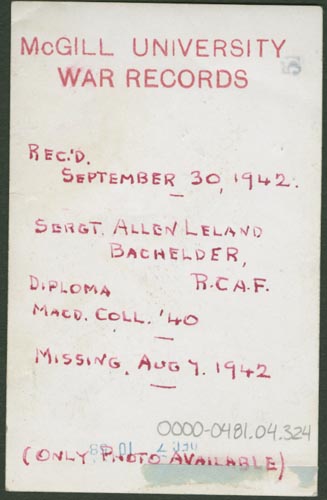 McGILL UNIVERSITY
WAR RECORDS
REC'D.
SEPTEMBER 30, 1942.
SERGT. ALLEN LELAND
BACHELDER,
R.C.A.F.
DIPLOMA
MACD. COLL. '40
MISSING, AUG 7. 1942
0000-0481.04.324
(ONLY PHOTO AVAILABLE)